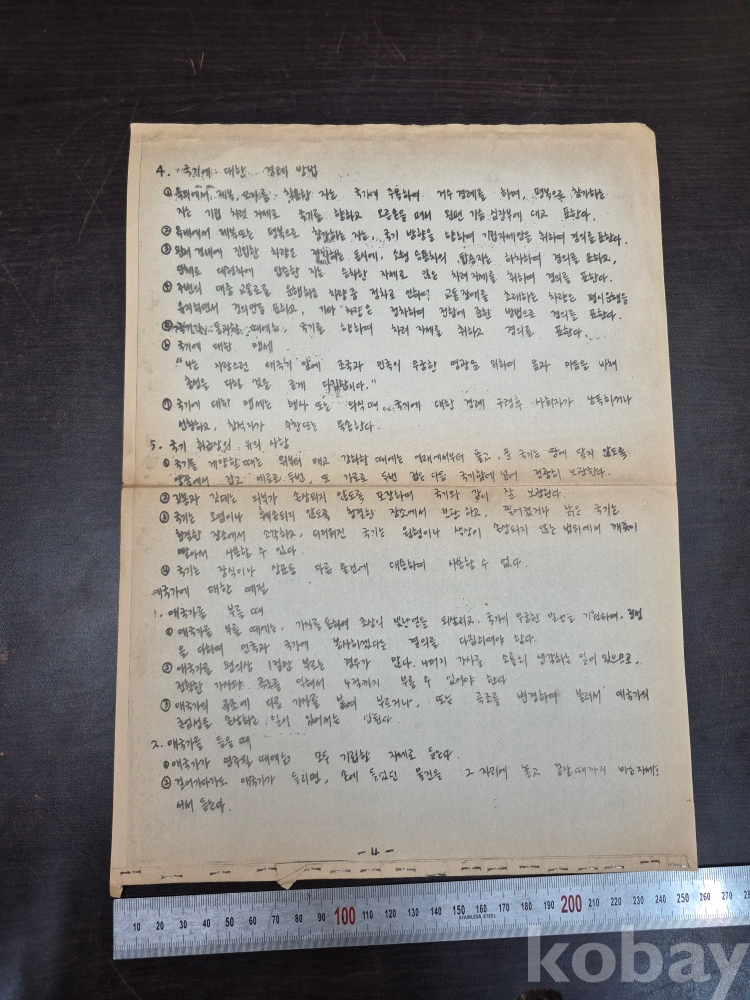 4. 국기에 대한 경례 방법
① 옥외에서 제복, 모자를 착용한 자는 국기에 주목하여 거수 경례를 하며, 평복으로 참가하는
자는 기립 차려 자세로 국기를 향하고 오른손을 펴서 왼편 가슴 심장부에 대고 표한다.
② 옥내에서 제복또는 평복으로 참가하는 자는, 국기 방향을 향하여 기립자세만을 취하여 경의를 표한다.
③ 경내에 진입한 차량은 동시에, 소형 승용차의 탑승자는 하차하여 경의를 표하고,
대형차에 탑승한 자는 승차한 자세로 앉은 차려 자세를 취하여 경의를 표한다.
④ 주변의 대중 교통로를 운행하는 차량중 정차로 인하여 교통장애를 초래하는 차량은 운행을
유지하면서 경의만을 표하고, 기타 차량은 정차하여 전항에 준한 방법으로 경의를 표한다.
⑤ 통과할 때에는, 국기를 향하여 차려 자세를 취하고 경의를 표한다.
⑥ 국기에 대한 맹세
"나는 자랑스런 태극기 앞에 조국과 민족의 무궁한 영광을 위하여 몸과 마음을 바쳐
충성을 다할 것을 굳게 다짐합니다."
⑦ 국기에 대한 맹세는 행사 또는 의식때 국기에 대한 경례 구령후 사회자가 낭독하거나
하고, 참석자가 또는 한다.
5. 국기 취급상의 유의 사항
① 국기를 게양할때는 위부터 매고 강하할 때에는 아래에서부터 풀고, 푼 국기는 땅에 닿지 않도록
양쪽에서 잡고 세로로 두번, 또 가로로 두번 접은 다음 국기함에 넣어 정중히 보관한다.
② 깃봉과 깃대는 외부가 손상되지 않도록 포장하여 국기와 같이 잘 보관한다.
③ 국기는 오염이나 훼손되지 않도록 청결한 장소에서 보관 하고, 찢어졌거나 낡은 국기는
청결한 장소에서 소각하고, 더러워진 국기는 원형이나 색상이 손상되지 또는 범위에서 깨끗이
빨아서 사용할 수 있다.
④ 국기는 장식이나 상표등 다른 물건에 대용하여 사용할 수 없다.
애국가에 대한 예절
1. 애국가를 부를 때
① 애국가를 부를 때에는, 가사를 음미하여 조상의 빛난얼을 되살리고, 국가의 무궁한 발전을 기원하며, 정성
을 다하여 민족과 국가에 봉사하겠다는 결의를 다짐하여야 한다.
② 애국가를 편의상 1절만 부르는 경우가 많다. 나머지 가사를 소홀히 생각하는 일이 있으므로,
정확한 가사와 곡조를 익혀서 4절까지 부를 수 있어야 한다
③ 애국가의 곡조에 다른 가사를 붙여 부르거나, 또는 곡조를 변경하여 불러서 애국가의
존엄성을 손상하는 일이 있어서는 안된다
2. 애국가를 들을 때
① 애국가가 연주될 때에는 모두 기립한 자세로 듣는다.
② 걸어가다가도 애국가가 들리면, 손에 들었던 물건을 그 자리에 놓고 끝날때까지 바른자세로
서서 듣는다.
-4-
kobay